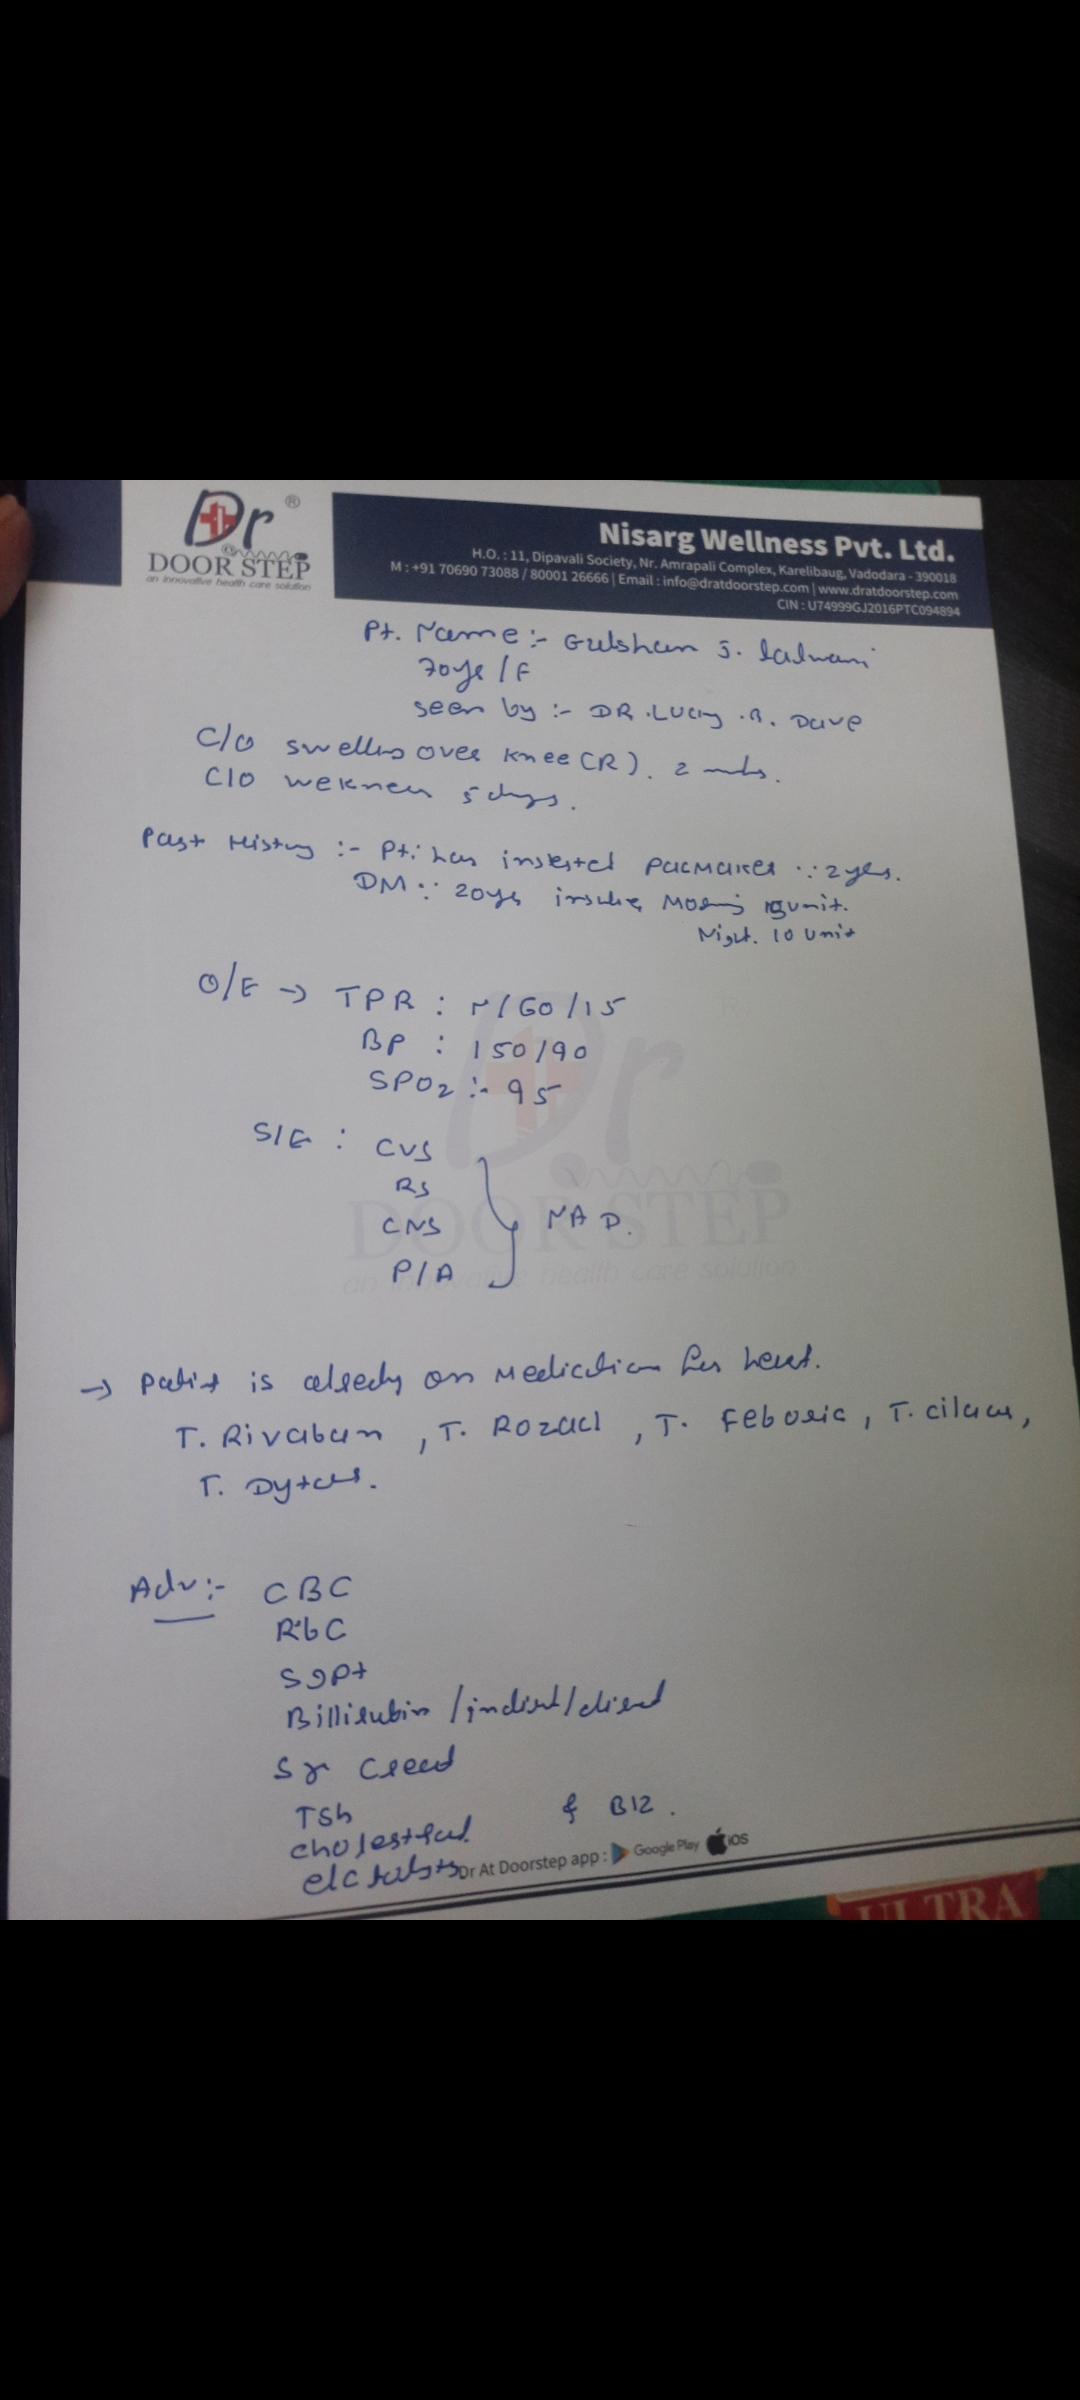 Dr ®
DOOR STEP
an innovative health care solution
Nisarg Wellness Pvt. Ltd.
H.O. : 11, Dipavali Society, Nr. Amrapali Complex, Karelibaug, Vadodara - 390018
M : +91 70690 73088 / 80001 26666 | Email : info@dratdoorstep.com | www.dratdoorstep.com
CIN : U74999GJ2016PTC094894
Pt. Name :- Gulshan S. lalwani
70ys / F
seen by :- DR. Lucy . B. Dave
C/O swelling over knee (R). 2 mnths.
C/O weknes 5 days.
Past History :- Pt. has insested pacmaker ∵ 2 yes.
DM ∵ 20ys insulin Morning unit.
Night. 10 unit
O/E → TPR : N / 60 / 15
BP : 150/90
SPO2 :- 95
S/E : CVS
RS
CNS
P/A
NAD.
→ Patient is already on Medication for heart.
T. Rivaban , T. Rozacl , T. Feboric , T. cilacar ,
T. Dytor .
Adv :- CBC
RbC
Sgpt
Billirubin / indirect / direct
Sr Creat
TSh & B12 .
cholestrol
Dr At Doorstep app : Google Play iOS
Dr
DOOR STEP
an innovative health care solution
ULTRA